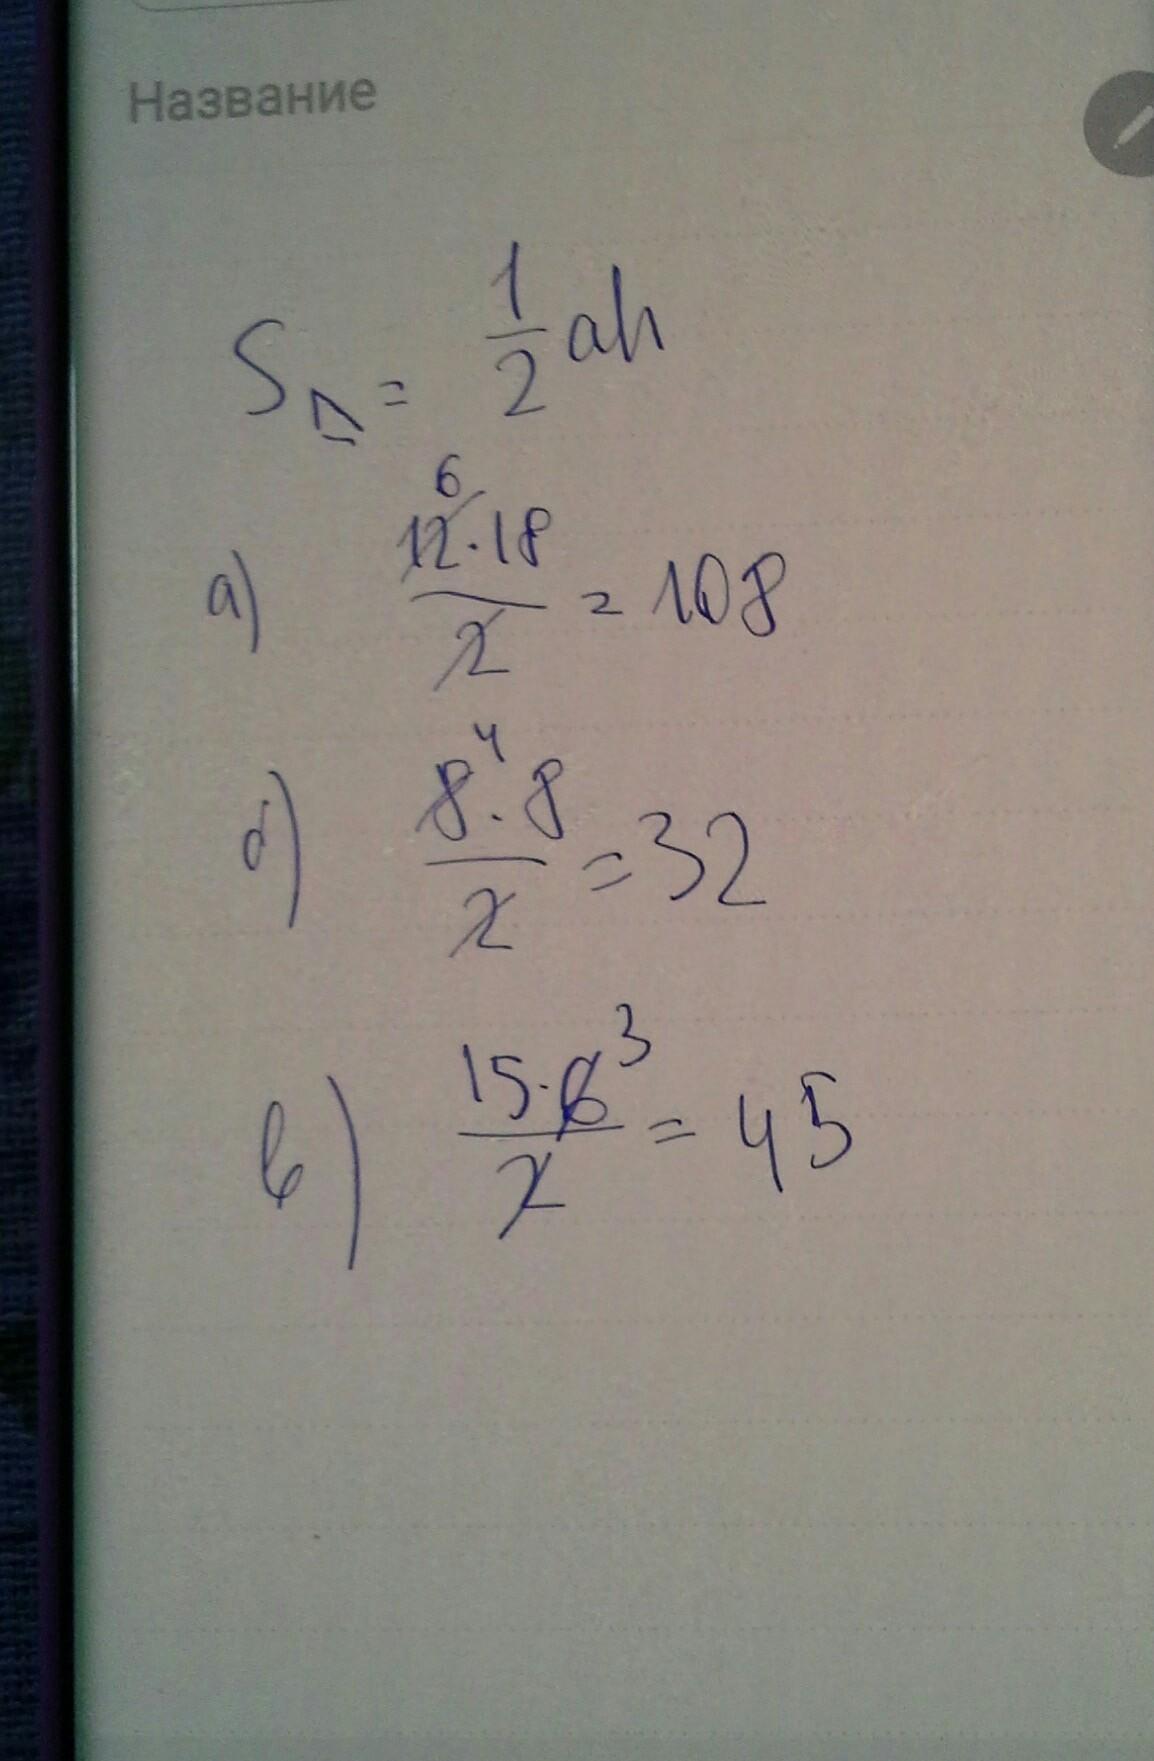 Название
S△ = 1/2 ah
а) 12⁶·18/2 = 108
б) 8⁴·8/2 = 32
в) 15·6³/2 = 45